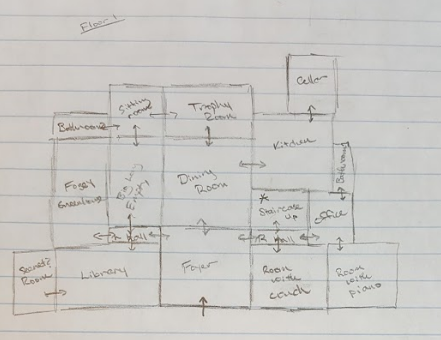 Floor 1
Cellar
Sitting
room
Trophy
Room
Bathroom
Kitchen
Bathroom
Foggy
Greenhouse
Big
Empty
Dining
Room
*
Staircase
up
office
Hall
R Hall
Secret
Room
Library
Foyer
Room
with
couch
Room
with
piano